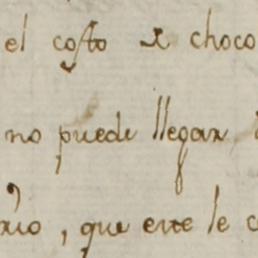 el costo de choco
no puede llegar
xio, que este le c